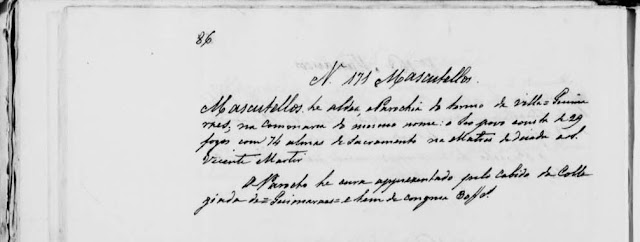 86
N. 171 Mascutellos.
Mascutellos he aldea, e Parochia do termo de villa = Guima
raes, na comarca do mesmo nome: o seo povo consta de 29
fogos com 74 almas de Sacramento na Matriz dedicada a S.
Vicente Martir
O Parocho he cura appresentado pelo cabido da Colle
giada de = Guimaraes = e tem de congrua